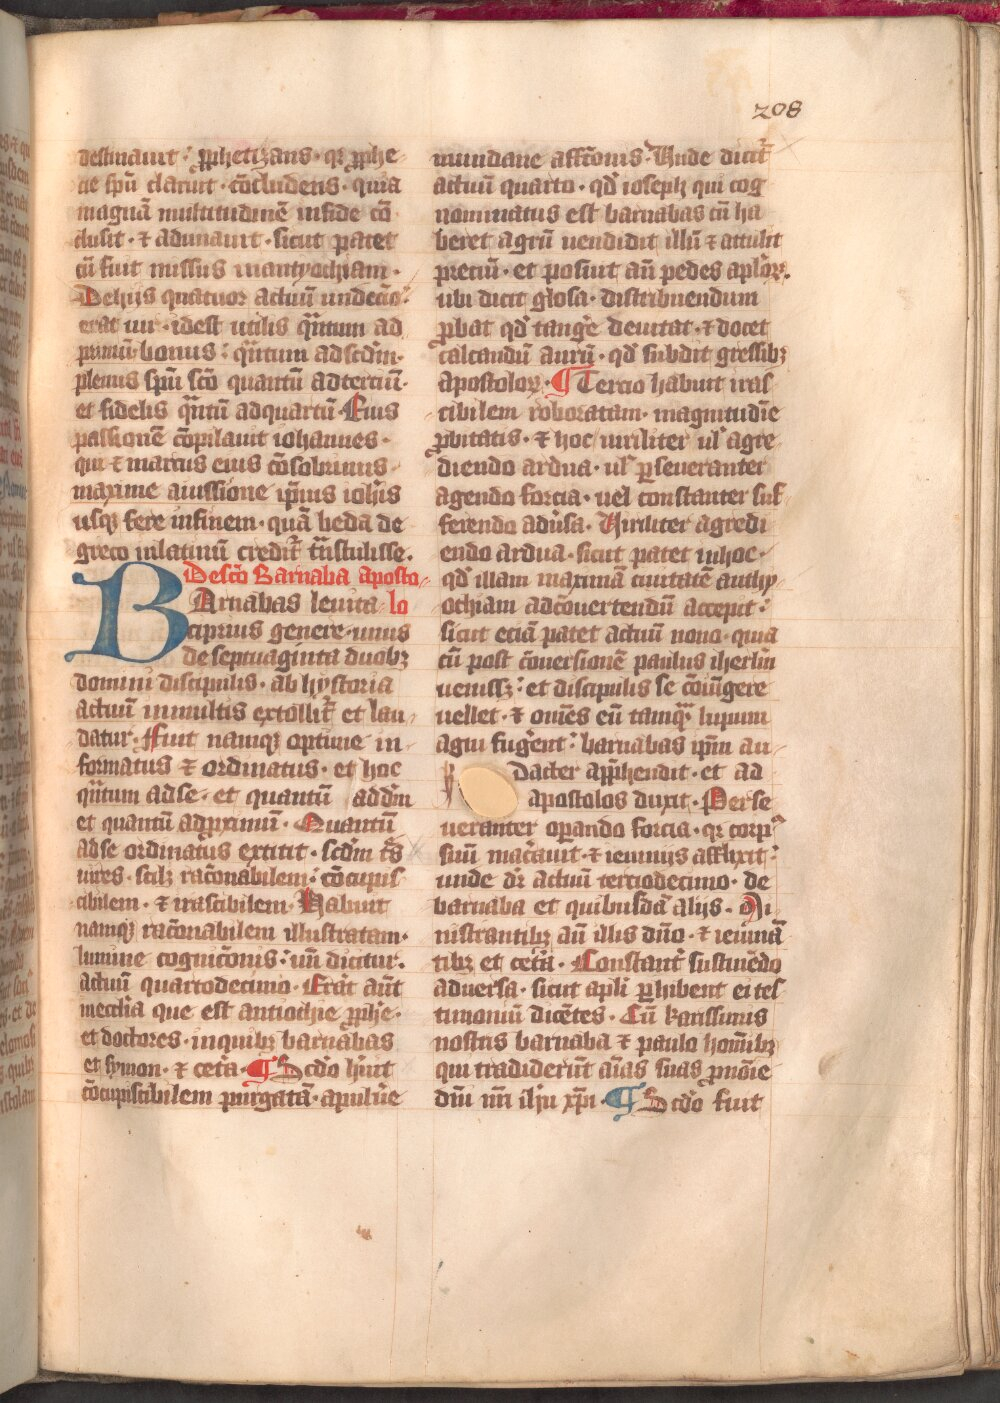 208
destinauit· ꝓphetizans· qꝛ ꝓphe-
cie spū claruit· cōcludens· quia
magnā multitudinē infide cō-
clusit· ⁊ adunauit· sicut patet
cū fuit missus inantyochiam·
Dehijs quatuor actuū undecīo·
erat uir· idest utilis qn̄tum ad
primū bonus· qn̄tum ad scdm̄·
plenus spū sc̄o quantū ad terciū·
et fidelis qn̄tū adquartū· Eius
passionē cōpilauit iohannes·
qui ⁊ marcus eius cōsobrinus
maxime aiussione ip̄ius ioh̄is
usqꝫ fere infinem· quā beda de
greco inlatinū credit᷑ tn̄stulisse.
Desc̄o Barnaba aposto-
BArnabas leuita lo
ciprius genere· unus
de septuaginta duobꝫ
domini discipulis· ab hystoria
actuū inmultis extollit᷑ et lau-
datur· Fuit namqꝫ optime in-
formatus ⁊ ordinatus· et hoc
qn̄tum adse· et quantū addm̄
et quantū adꝓximū· Quantū
adse ordinatus extitit· scdm̄ t̄s
uires· scilꝫ rac̄onabilem· cōcupis-
cibilem· ⁊ irascibilem· Habuit
namqꝫ rac̄onabilem illustratam·
lumine cognic̄onis· un̄ dicitur·
actuū quartodecimo· Erāt aūt
inecclīa que est antiochie ꝓph̄e·
et doctores· inquibꝫ barnabas
et symon· ⁊ cetā· ¶ Scdo h̄uit
cōcupiscibilem purgatā· apulūe
mundane affc̄onis· Unde dicit᷑
actuū quarto· qd̄ ioseph qui cog-
nominatus est barnabas cū ha-
beret agrū uendidit illū ⁊ attulit
preciū· et posuit an̄ pedes apl̄oꝝ.
ubi dicit glosa· distribuendum
ꝓbat qd̄ tange deuitat· ⁊ docet
calcandū aurū· qd̄ subdit gressibꝫ
apostoloꝝ· ¶ Tercio habuit iras-
cibilem roboratam· magnitudīe
ꝓbitatis· ⁊ hoc uiriliter ul̄ agre-
diendo ardua· ul̄ ꝑseueranter
agendo forcia· uel constanter suf-
ferendo adūsa· Uiriliter agredi-
endo ardua· sicut patet inhoc·
qd̄ illam maximā ciuitatē anthy-
ochiam adcōuertendū accepit·
sicut eciā patet actuū nono· quia
cū post cōuersionē paulus iherlm̄
uenissꝫ· et discipulis se cōiūgere
uellet· ⁊ om̄es eū tamqꝫ lupum
agni fugerent· barnabas ip̄m au-
dacter appͣhendit· et ad
apostolos duxit· Perse-
ueranter oꝑando forcia· qꝛ corpꝰ
suū macāuit· ⁊ ieiunijs afflixit·
unde dr̄ actuū terciodecimo· de
barnaba et quibusdā alijs· Mi-
nistrantibꝫ aūt illis dn̄o· ⁊ ieiunā-
tibꝫ et cetā· Constant᷑ sustinēdo
aduersa· sicut apl̄i ꝑhibent ei tes-
timoniū dicētes· Cū karissimis
nostris barnaba ⁊ paulo hoīnibꝫ
qui tradiderūt aīas suas ꝓ noīe
dn̄i nr̄i ih̄u xp̄i· ¶ Scdo fuit